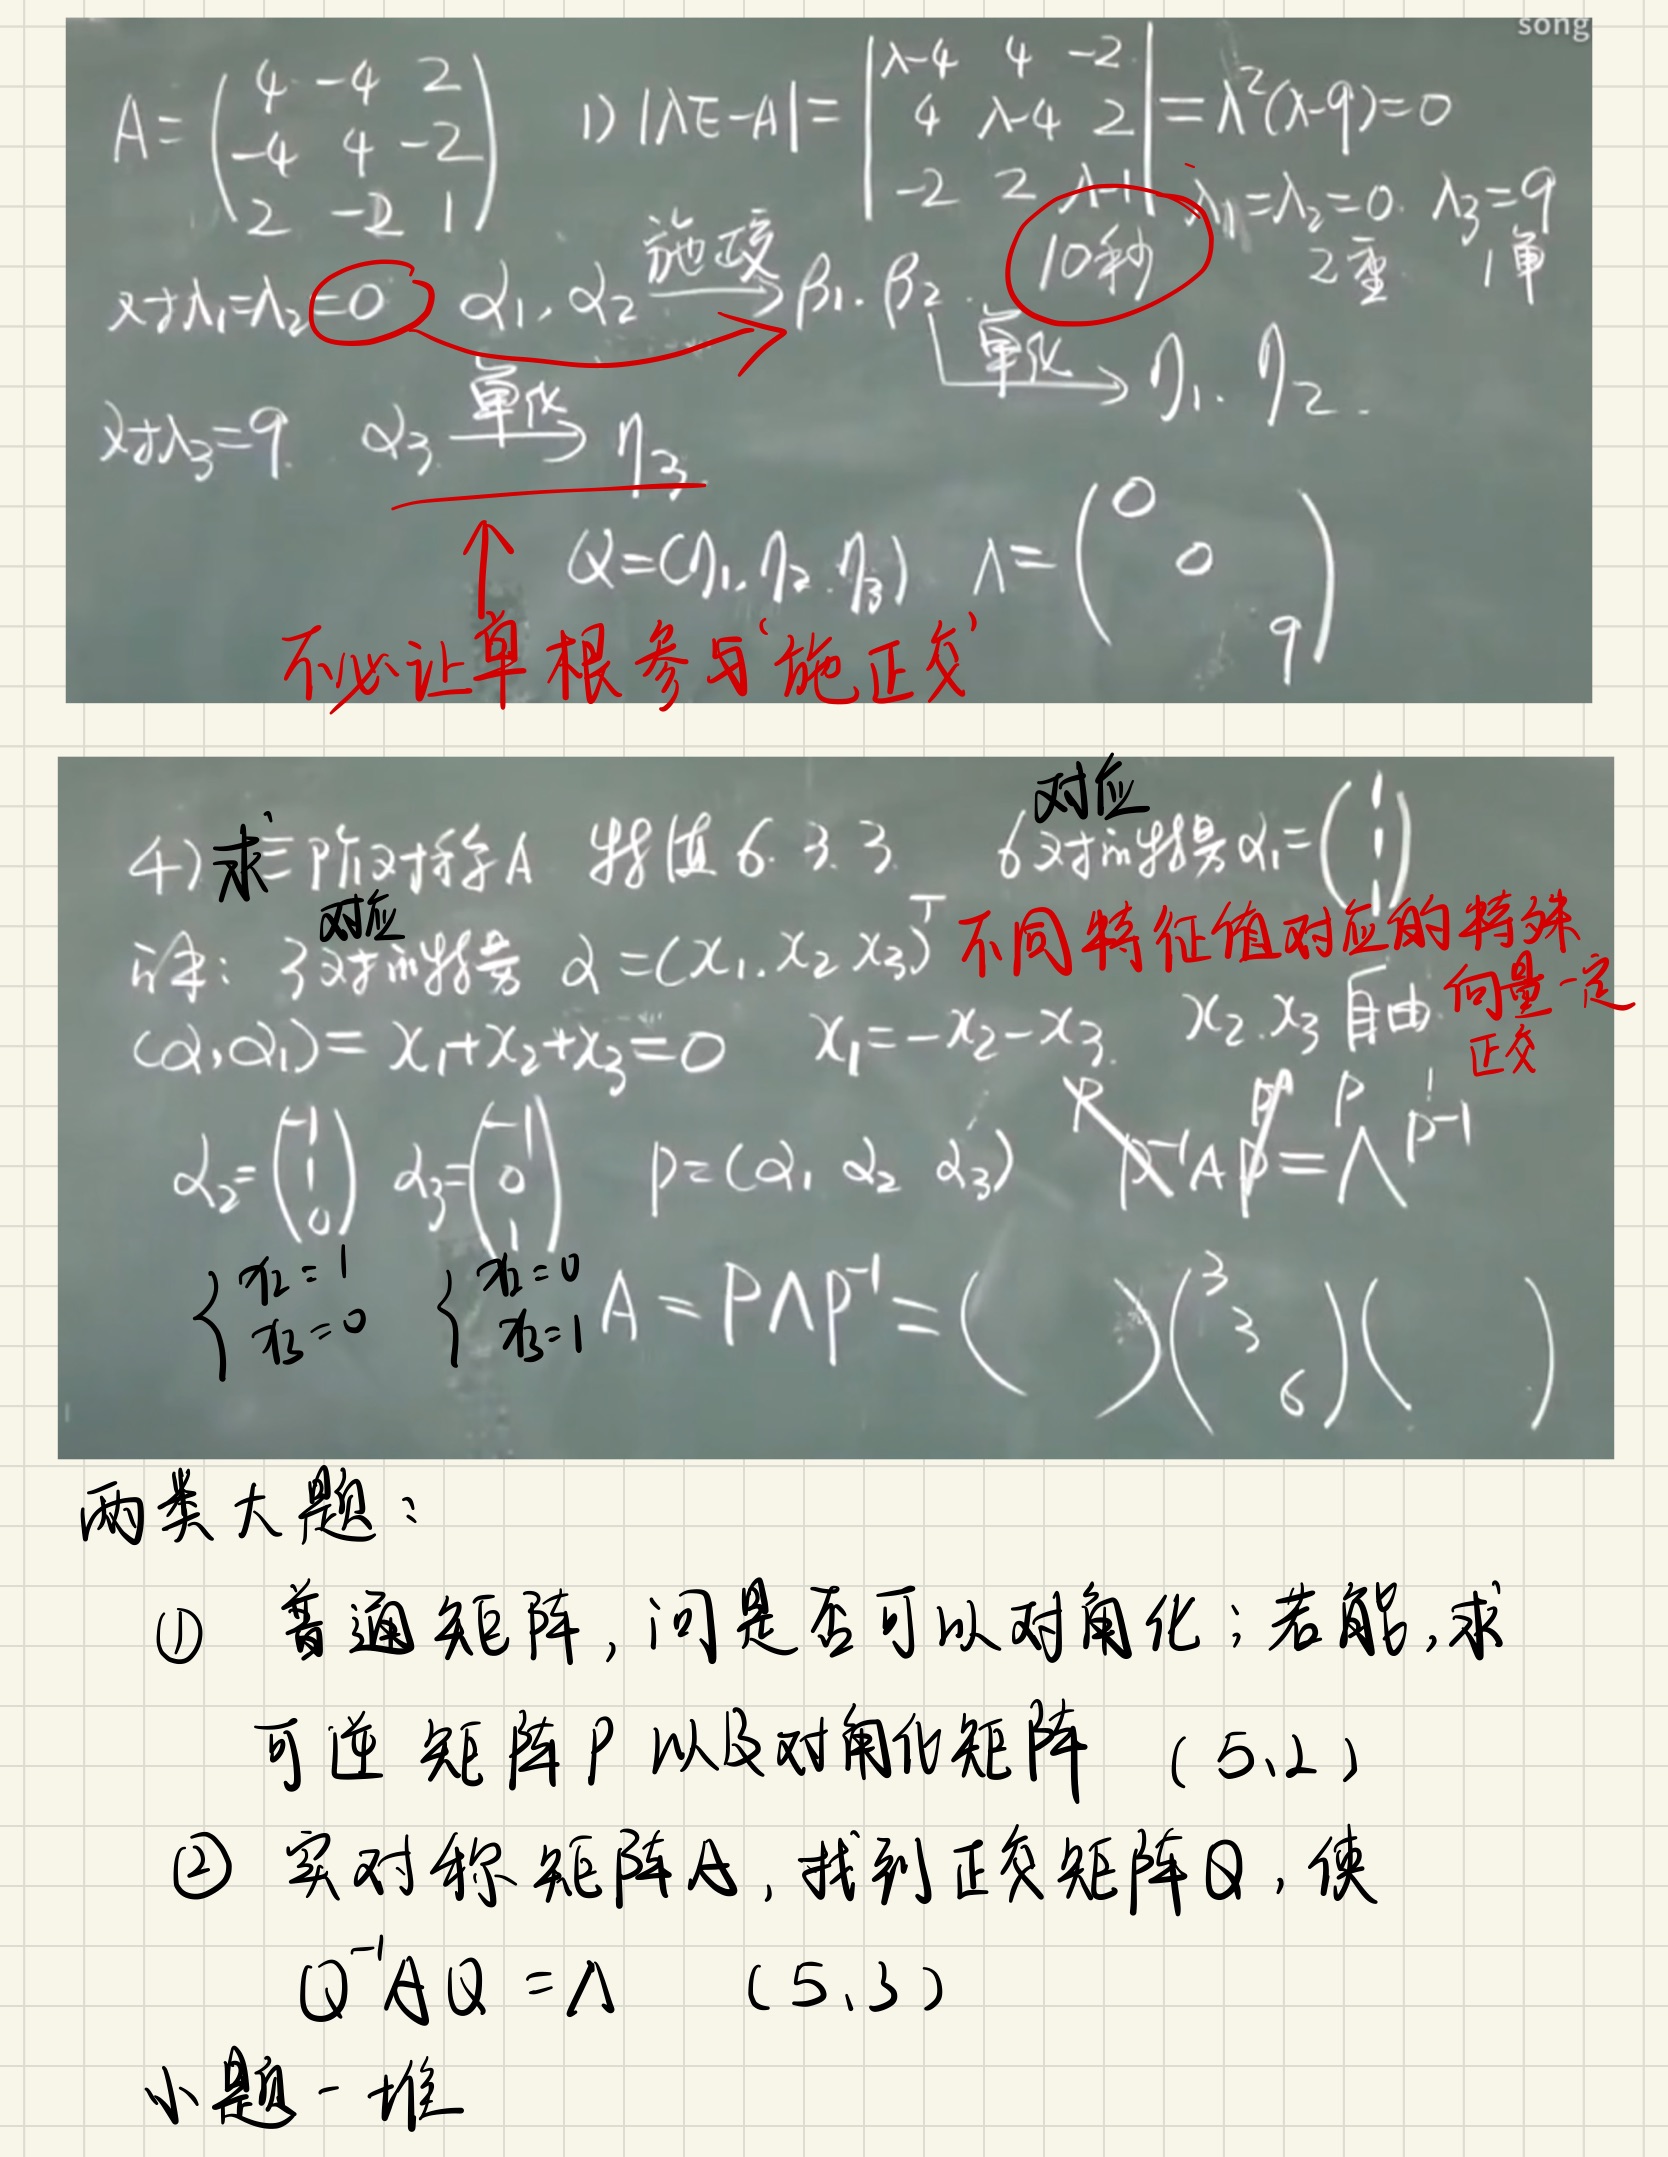 song
A = (4 -4 2
-4 4 -2
2 -2 1)
1) |λE-A| = |λ-4 4 -2
4 λ-4 2
-2 2 λ-1| = λ²(λ-9)=0
λ₁=λ₂=0. λ₃=9
10秒 2重 1单
对λ₁=λ₂=0 α₁, α₂ 施正交→ β₁. β₂.
单化→ η₁. η₂.
对λ₃=9. α₃ 单化→ η₃.
Q=(η₁. η₂. η₃) Λ=(0
0
9)
不必让单根参与‘施正交’
对应
4) 求三阶对称A 特值 6. 3. 3. 6对应特量α₁=(1
1
1)
对应
详: 3对应特量 α=(x₁. x₂ x₃)ᵀ 不同特征值对应的特殊
向量一定
正交
(α,α₁)=x₁+x₂+x₃=0 x₁=-x₂-x₃. x₂.x₃自由
α₂=(-1
1
0) α₃=(-1
0
1) P=(α₁ α₂ α₃) P P⁻¹AP P⁻¹ = P Λ P⁻¹
{x₂=1
x₃=0
{x₂=0
x₃=1
A = PΛP⁻¹ = ( )(3
3
6)( )
两类大题:
① 普通矩阵,问是否可以对角化;若能,求
可逆矩阵P以及对角化矩阵 (5.2)
② 实对称矩阵A,找到正交矩阵Q,使
Q⁻¹AQ=Λ (5.3)
小题一堆